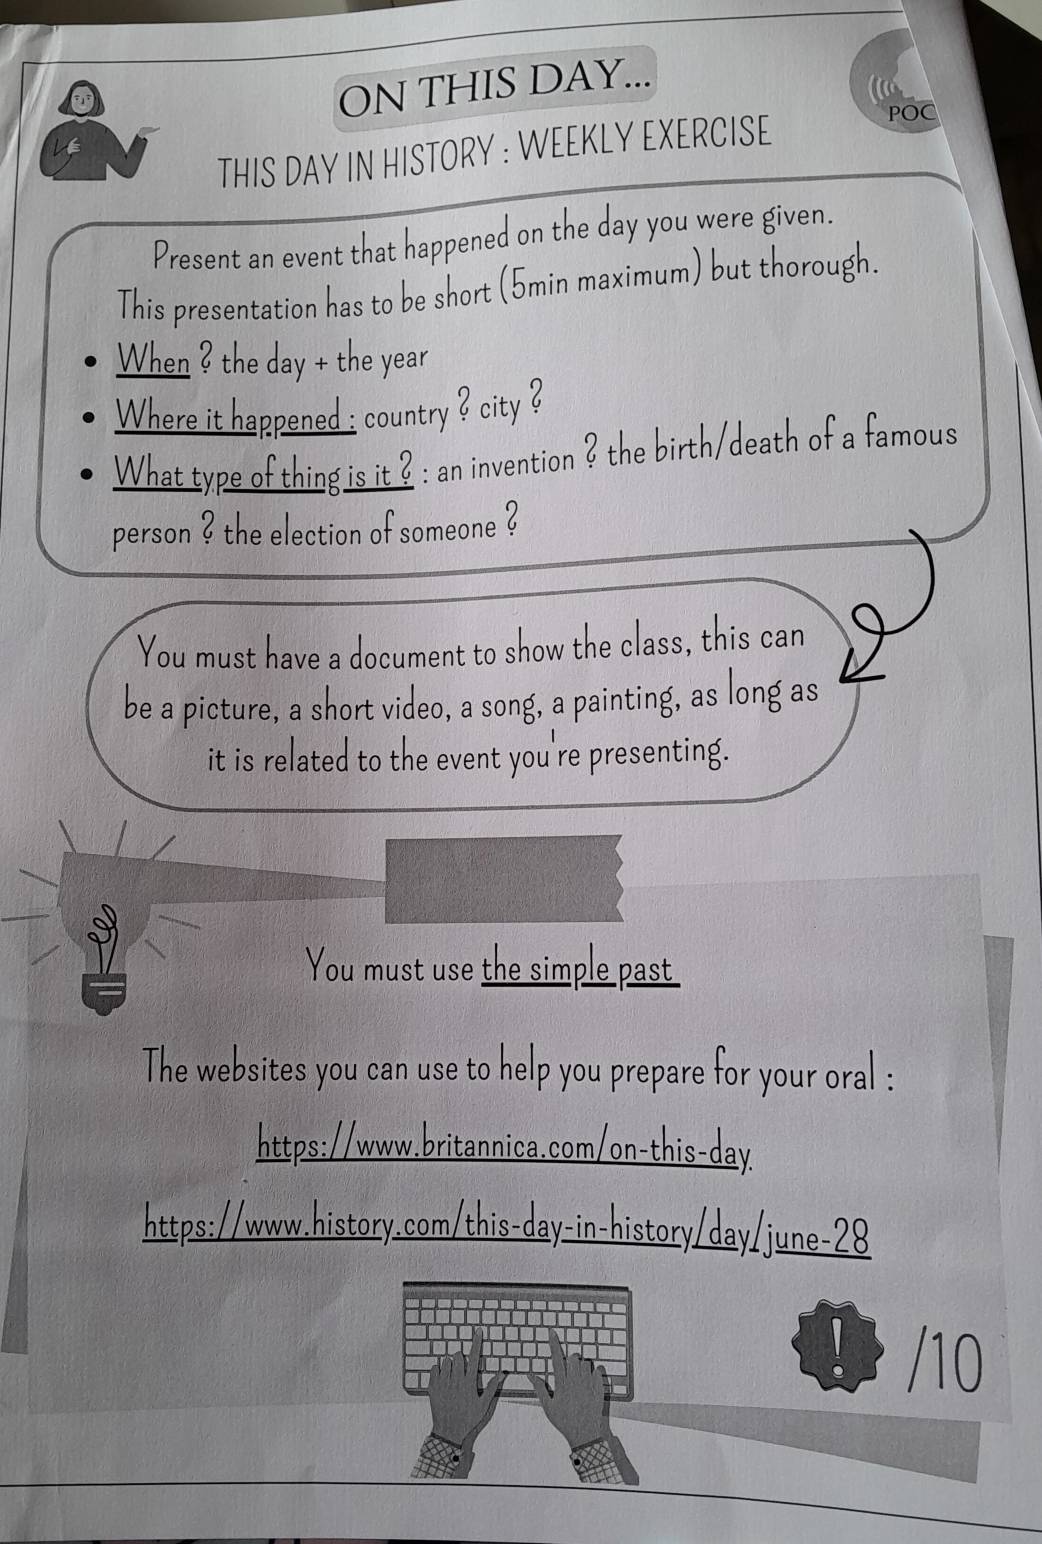 ON THIS DAY...
POC
THIS DAY IN HISTORY : WEEKLY EXERCISE
Present an event that happened on the day you were given.
This presentation has to be short (5min maximum) but thorough.
• When ? the day + the year
• Where it happened : country ? city ?
• What type of thing is it ? : an invention ? the birth/death of a famous
person ? the election of someone ?
You must have a document to show the class, this can
be a picture, a short video, a song, a painting, as long as
it is related to the event you're presenting.
You must use the simple past
The websites you can use to help you prepare for your oral :
https://www.britannica.com/on-this-day.
https://www.history.com/this-day-in-history/day/june-28
! /10